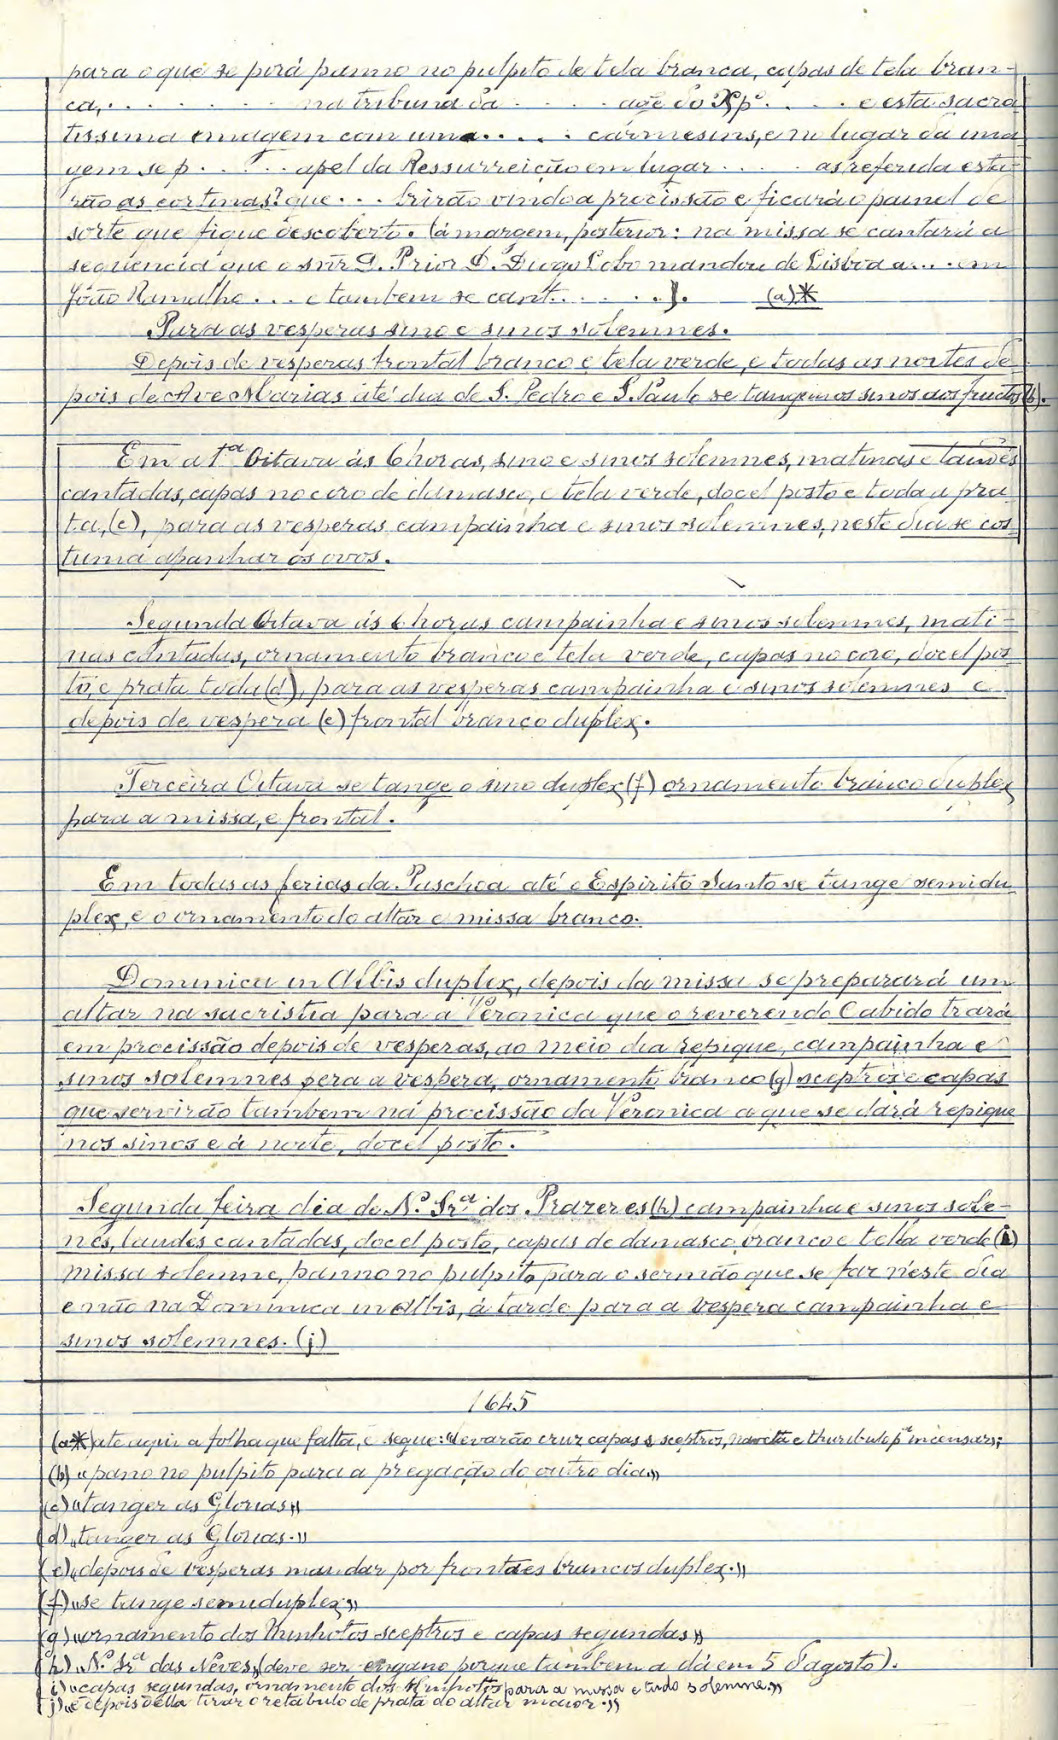 para o que se porá panno no pulpito de tela branca, capas de tela bran-
ca, . . . . . . . . na tribuna da . . . . . ave do Xpº . . . . e esta sacra
tissima imagem com uma . . . . . carmesins, e no lugar da ima
gem se p . . . . . apel da Ressurreição em lugar . . . . as referida esta-
rão as cortinas? que . . . brirão vindo a procissão e ficará o painel de
sorte que fique descoberto. (á margem, posterior: na missa se cantará a
sequencia que o snr D. Prior D. Diogo Lobo mandou de Lisboa a . . . em
João Ramalho . . . e tambem se cant . . . . . . ). (a)*
Para as vesperas sino e sinos solemnes.
Depois de vesperas frontal branco e tela verde, e todas as noites de
pois de Ave Marias até dia de S. Pedro e S. Paulo se tangem os sinos aos fructos (b).
Em a 1ª Oitava ás 6 horas, sino e sinos solemnes, matinas e laudes
cantadas, capas no coro de damasco, e tela verde, docel posto e toda a pra
ta, (c), para as vesperas campainha e sinos solemnes, neste dia se cos
tuma apanhar os ovos.
Segunda Oitava ás 6 horas campainha e sinos solemnes, mati-
nas cantadas, ornamento branco e tela verde, capas no coro, docel pos
to, e prata toda (d), para as vesperas campainha e sinos solemnes e
depois de vespera (e) frontal branco duplex.
Terceira Oitava se tange o sino duplex (f) ornamento branco duplex
para a missa, e frontal.
Em todas as ferias da Paschoa até o Espirito Santo se tange semidu
plex, e o ornamento do altar e missa branco.
Dominica in Albis duplex, depois da missa se preparará um
altar na sacristia para a Veronica que o reverendo Cabido trará
em procissão depois de vesperas, ao meio dia repique, campainha e
sinos solemnes pera a vespera, ornamento branco (g) sceptros e capas
que servirão tambem na procissão da Veronica a que se dará repique
nos sinos e á noite, docel posto.
Segunda feira dia de N.ª Sr.ª dos Prazeres (h) campainha e sinos sole-
nes, laudes cantadas, docel posto, capas de damasco branco e tella verde (i)
missa solemne, panno no pulpito para o sermão que se faz n'este dia
e não na Dominica in Albis, á tarde para a vespera campainha e
sinos solemnes. (j)
1645
(a*) ate aqui a folha que falta, e segue: levarão cruz capas e sceptros, naveta e thuribulo pª incensar;
(b) "pano no pulpito para a pregação do outro dia"
(c) "tanger as Glorias"
(d) "tanger as Glorias."
(e) "depois de vesperas mandar por frontaes brancos duplex."
(f) "se tange semiduplex"
(g) "ornamento dos Minhotos sceptros e capas segundas"
(h) "N.ª Sr.ª das Neves" (deve ser engano porque tambem a dá em 5 d'agosto).
i) "capas segundas, ornamento dos Minhotos para a missa e tudo solemne."
j) "e depois della tirar o retabulo de prata do altar maior."